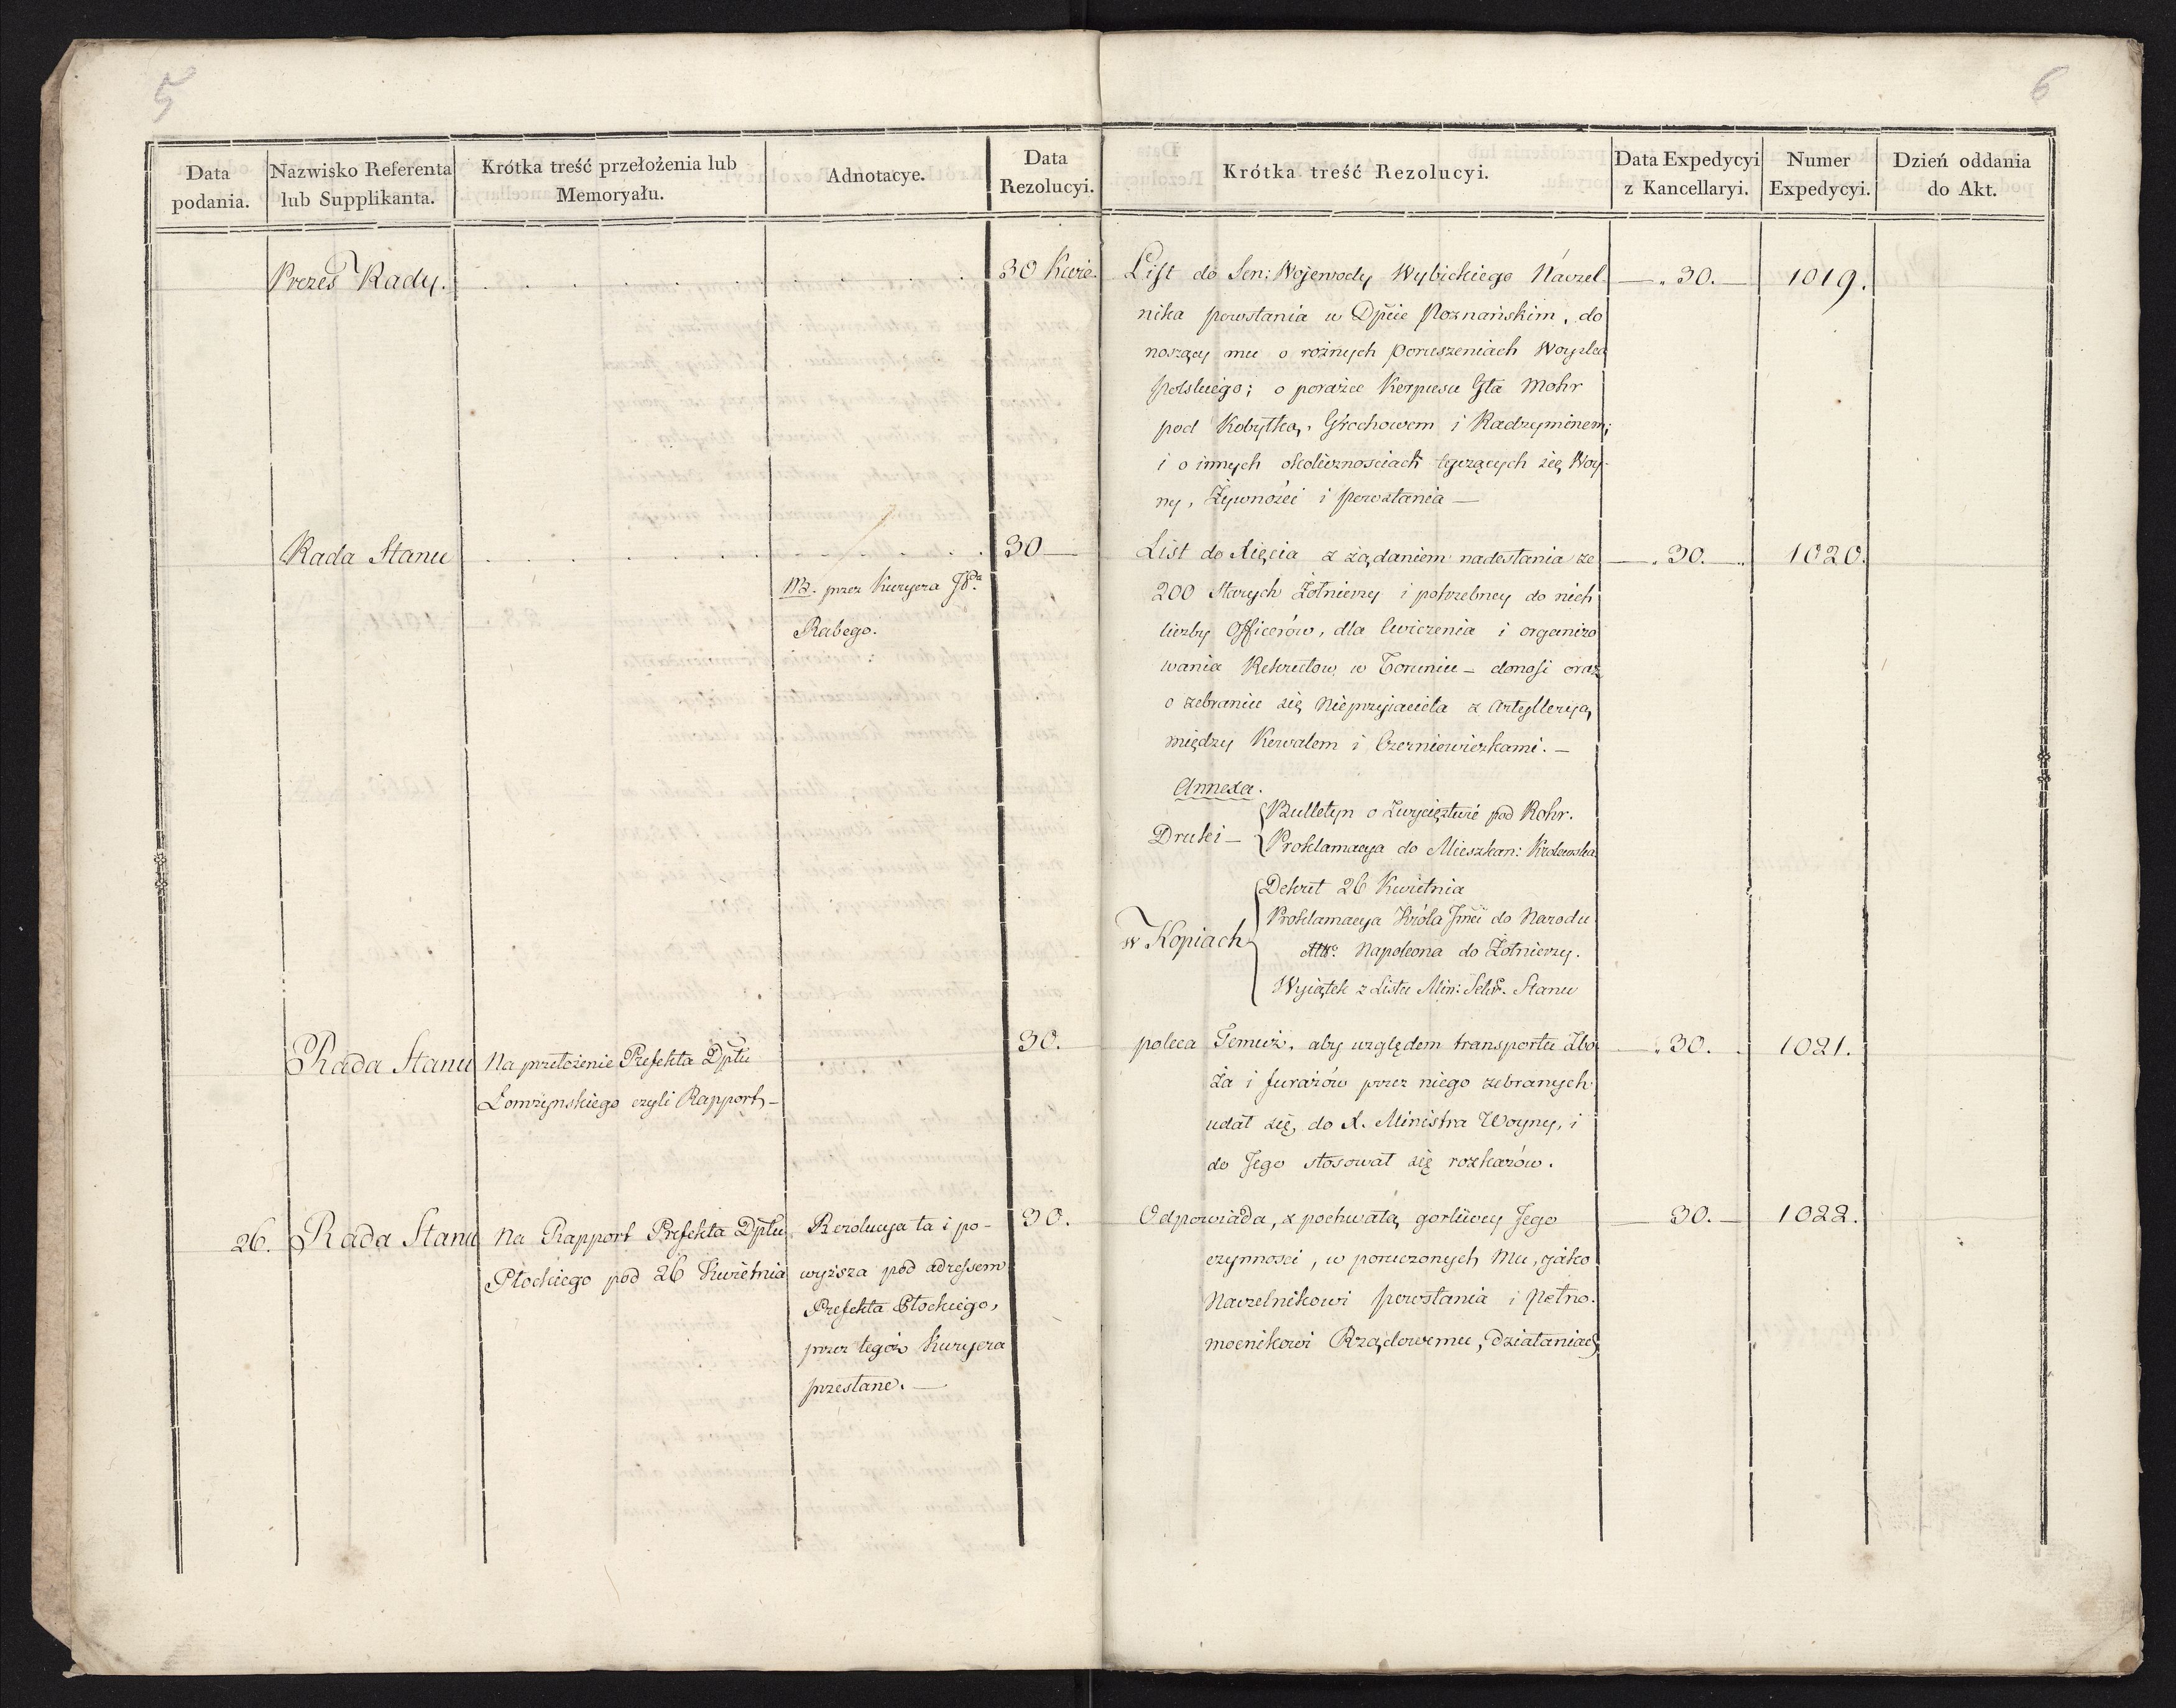 5
6
Data podania.
Nazwisko Referenta lub Supplikanta.
Krótka treść przełożenia lub Memoryału.
Adnotacye.
Data Rezolucyi.
Krótka treść Rezolucyi.
Data Expedycyi z Kancellaryi.
Numer Expedycyi.
Dzień oddania do Akt.
Prezes Rady.
30 Kwie.
List do Sen: Wojewody Wybickiego Naczel-
nika powstania w Dpcie Poznańskim, do
noszący mu o rożnych poruszeniach Woyska
Polskiego; o porażce Korpusu Gła Mohr
pod Kobyłką, Grochowem i Radzyminem;
i o innych okolicznosciach tyczących się Woy-
ny, Żywności i powstania —
— „ 30. —
1019.
Rada Stanu
NB. przez Kuryera JP.
Rabego.
30 —
List do Xięcia z żądaniem nadesłania ze
200 Starych Żołnierzy i potrzebney do nich
liczby Officerów, dla Cwiczenia i organizo
wania Rekrutow w Toruniu — donosi oraz
o zebraniu się Nieprzyiaciela z Artylleryą
między Kowalem i Czerniewiczkami. —
Annexa.
Druki — Bulletyn o Zwycięztwie pod Rohr.
Proklamacya do Mieszkan: Krolewska
w Kopiach Dekret 26 Kwietnia
Proklamacya Króla Jmci do Narodu
Napoleona do Żołnierzy.
Wyiątek z Listu Min: Sekr. Stanu
— „ 30. — „
1020.
Rada Stanu
Na przełożenie Prefekta Dptu
Łomżynskiego czyli Rapport —
30.
poleca Temuż, aby względem transportu Zbo
ża i furażów przez niego zebranych
udał się, do X. Ministra Woyny, i
do Jego stosował się rozkazów.
— „ 30.
1021.
26.
Rada Stanu
Na Rapport Prefekta Dptu
Płockiego pod 26 Kwietnia
Rezolucya ta i po-
wyższa pod adressem
Prefekta Płockiego,
przez tegoż Kuryera
przesłane. —
30.
Odpowiada, z pochwałą gorliwey Jego
czynnosci, w poruczonych Mu, jako
Naczelnikowi powstania i Pełno-
mocnikowi Rządowemu, działaniach
— 30. —
1022.